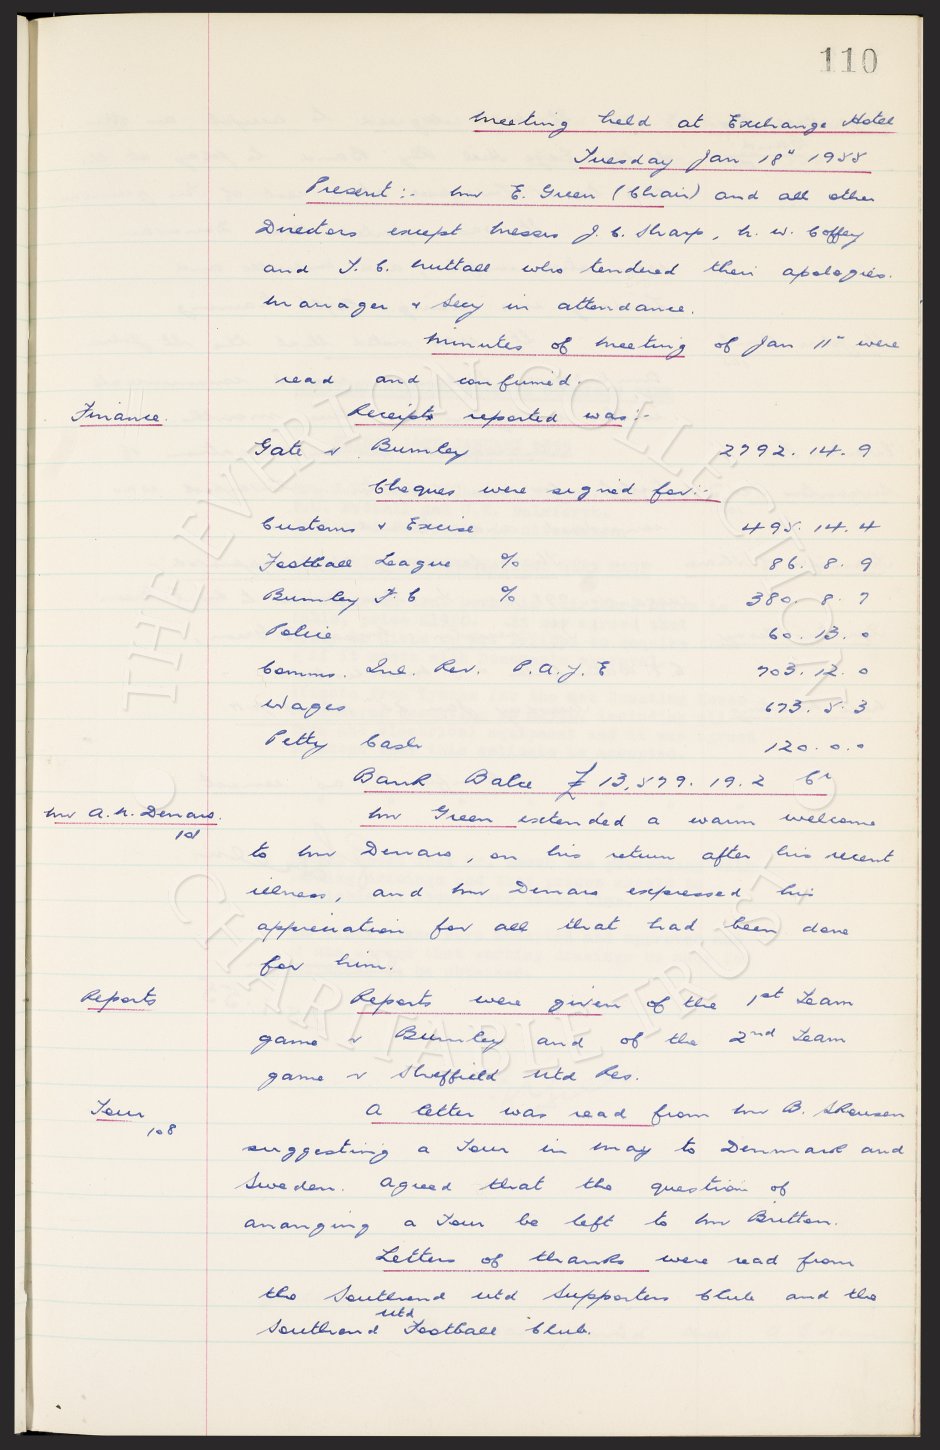 110
Meeting held at Exchange Hotel
Tuesday Jan 18" 1955
Present:- Mr E. Green (Chair) and all other
Directors except Messrs J. C. Sharp, N. W. Coffey
and T. C. Nuttall who tendered their apologies.
Manager & Secy in attendance.
Minutes of Meeting of Jan 11" were
read and confirmed.
Finance. Receipts reported was:-
Gate v Burnley 2792. 14. 9
Cheques were signed for:-
Customs & Excise 495. 14. 4
Football League % 86. 8. 9
Burnley F. C % 380. 8. 7
Police 60. 13. 0
Comms. Inl. Rev. P.A.Y.E 703. 12. 0
Wages 673. 5. 3
Petty Cash 120. 0. 0
Bank Balce £ 13,579. 19. 2 Cr
Mr A. N. Denaro. Mr Green extended a warm welcome
101
to Mr Denaro, on his return after his recent
illness, and Mr Denaro expressed his
appreciation for all that had been done
for him.
Reports Reports were given of the 1st Team
game v Burnley and of the 2nd Team
game v Sheffield Utd Res.
Tour A letter was read from Mr B.
108
suggesting a Tour in May to Denmark and
Sweden. Agreed that the question of
arranging a Tour be left to Mr Britton.
Letters of thanks were read from
the Southend Utd Supporters Club and the
Southend Utd Football Club.
THE EVERTON COLLECTION
CHARITABLE TRUST